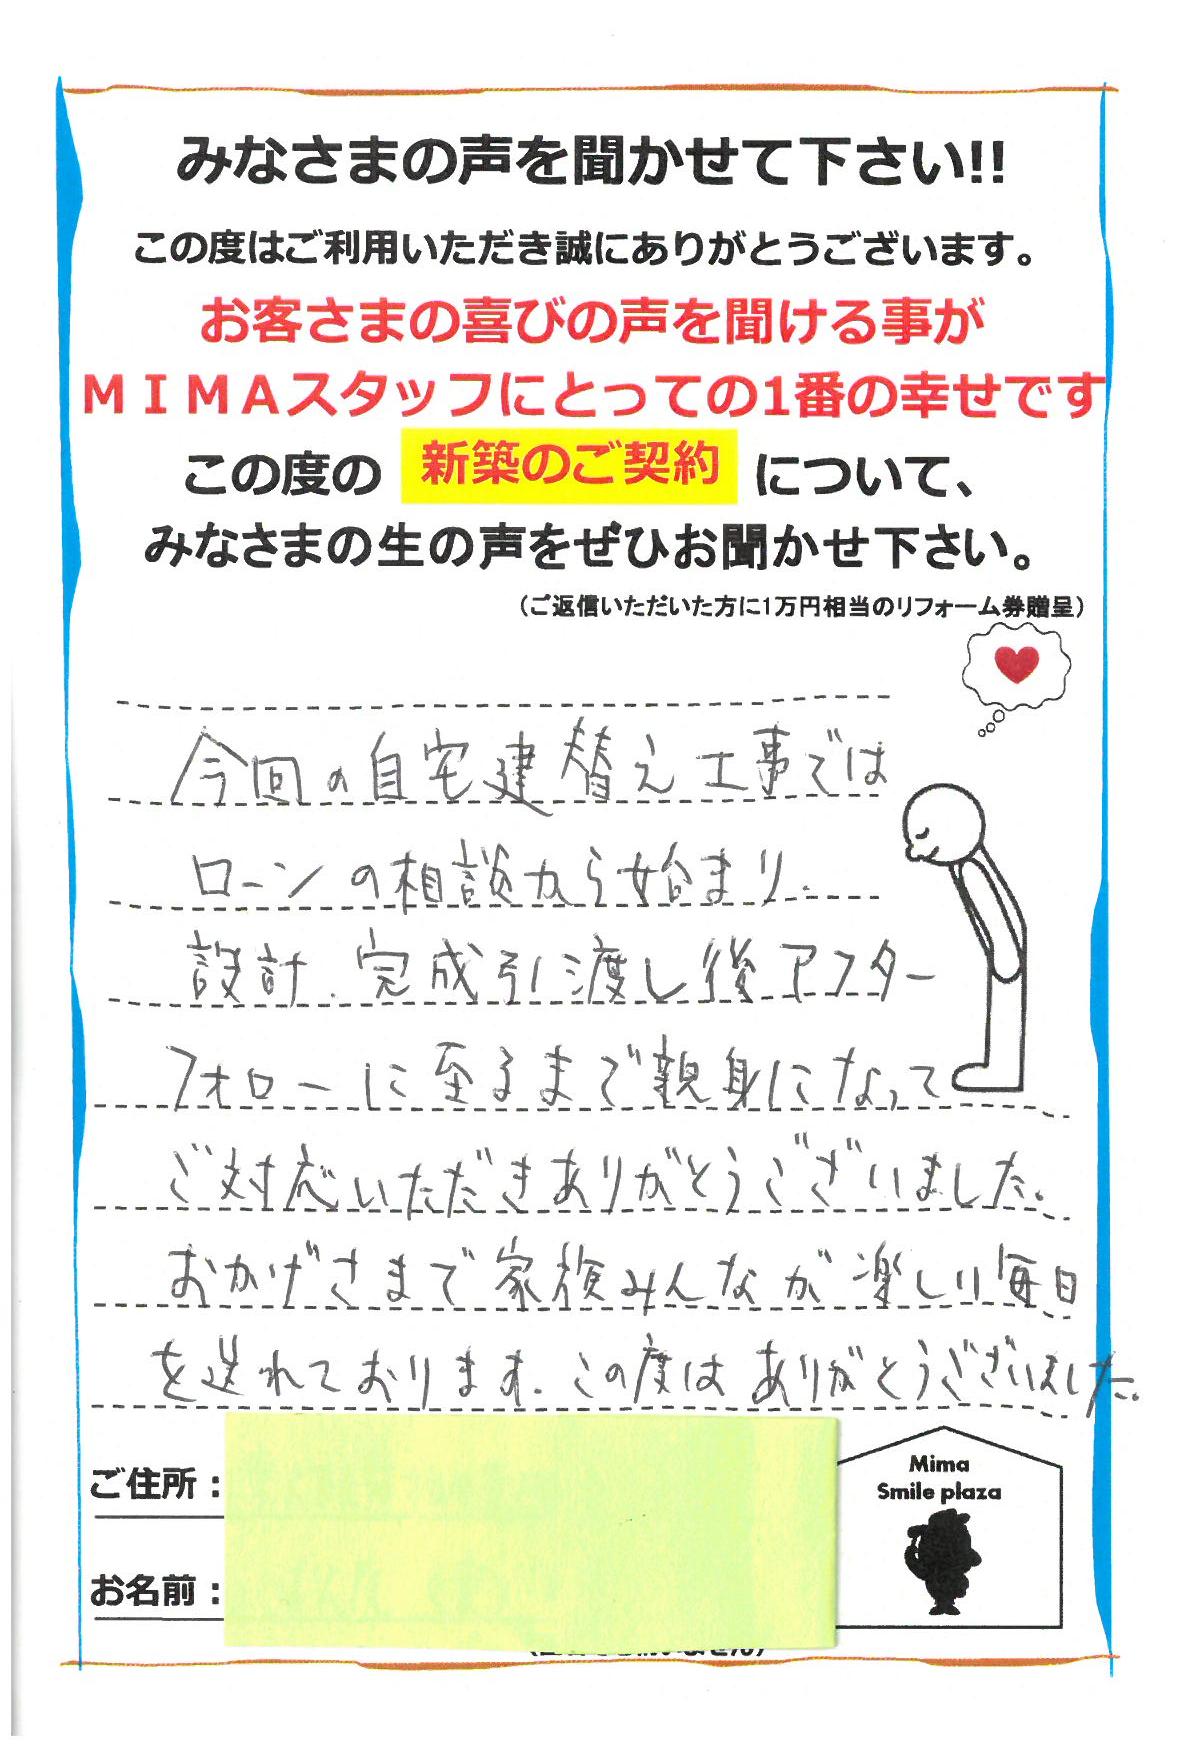 みなさまの声を聞かせて下さい!!
この度はご利用いただき誠にありがとうございます。
お客さまの喜びの声を聞ける事が
ＭＩＭＡスタッフにとっての1番の幸せです
この度の 新築のご契約 について、
みなさまの生の声をぜひお聞かせ下さい。
（ご返信いただいた方に1万円相当のリフォーム券贈呈）
今回の自宅建替え工事では
ローンの相談から始まり、
設計、完成引渡し後アフター
フォローに至るまで親身になって
ご対応いただきありがとうございました。
おかげさまで家族みんなが楽しい毎日
を送れております。この度はありがとうございました。
ご住所：
お名前：
Mima
Smile plaza